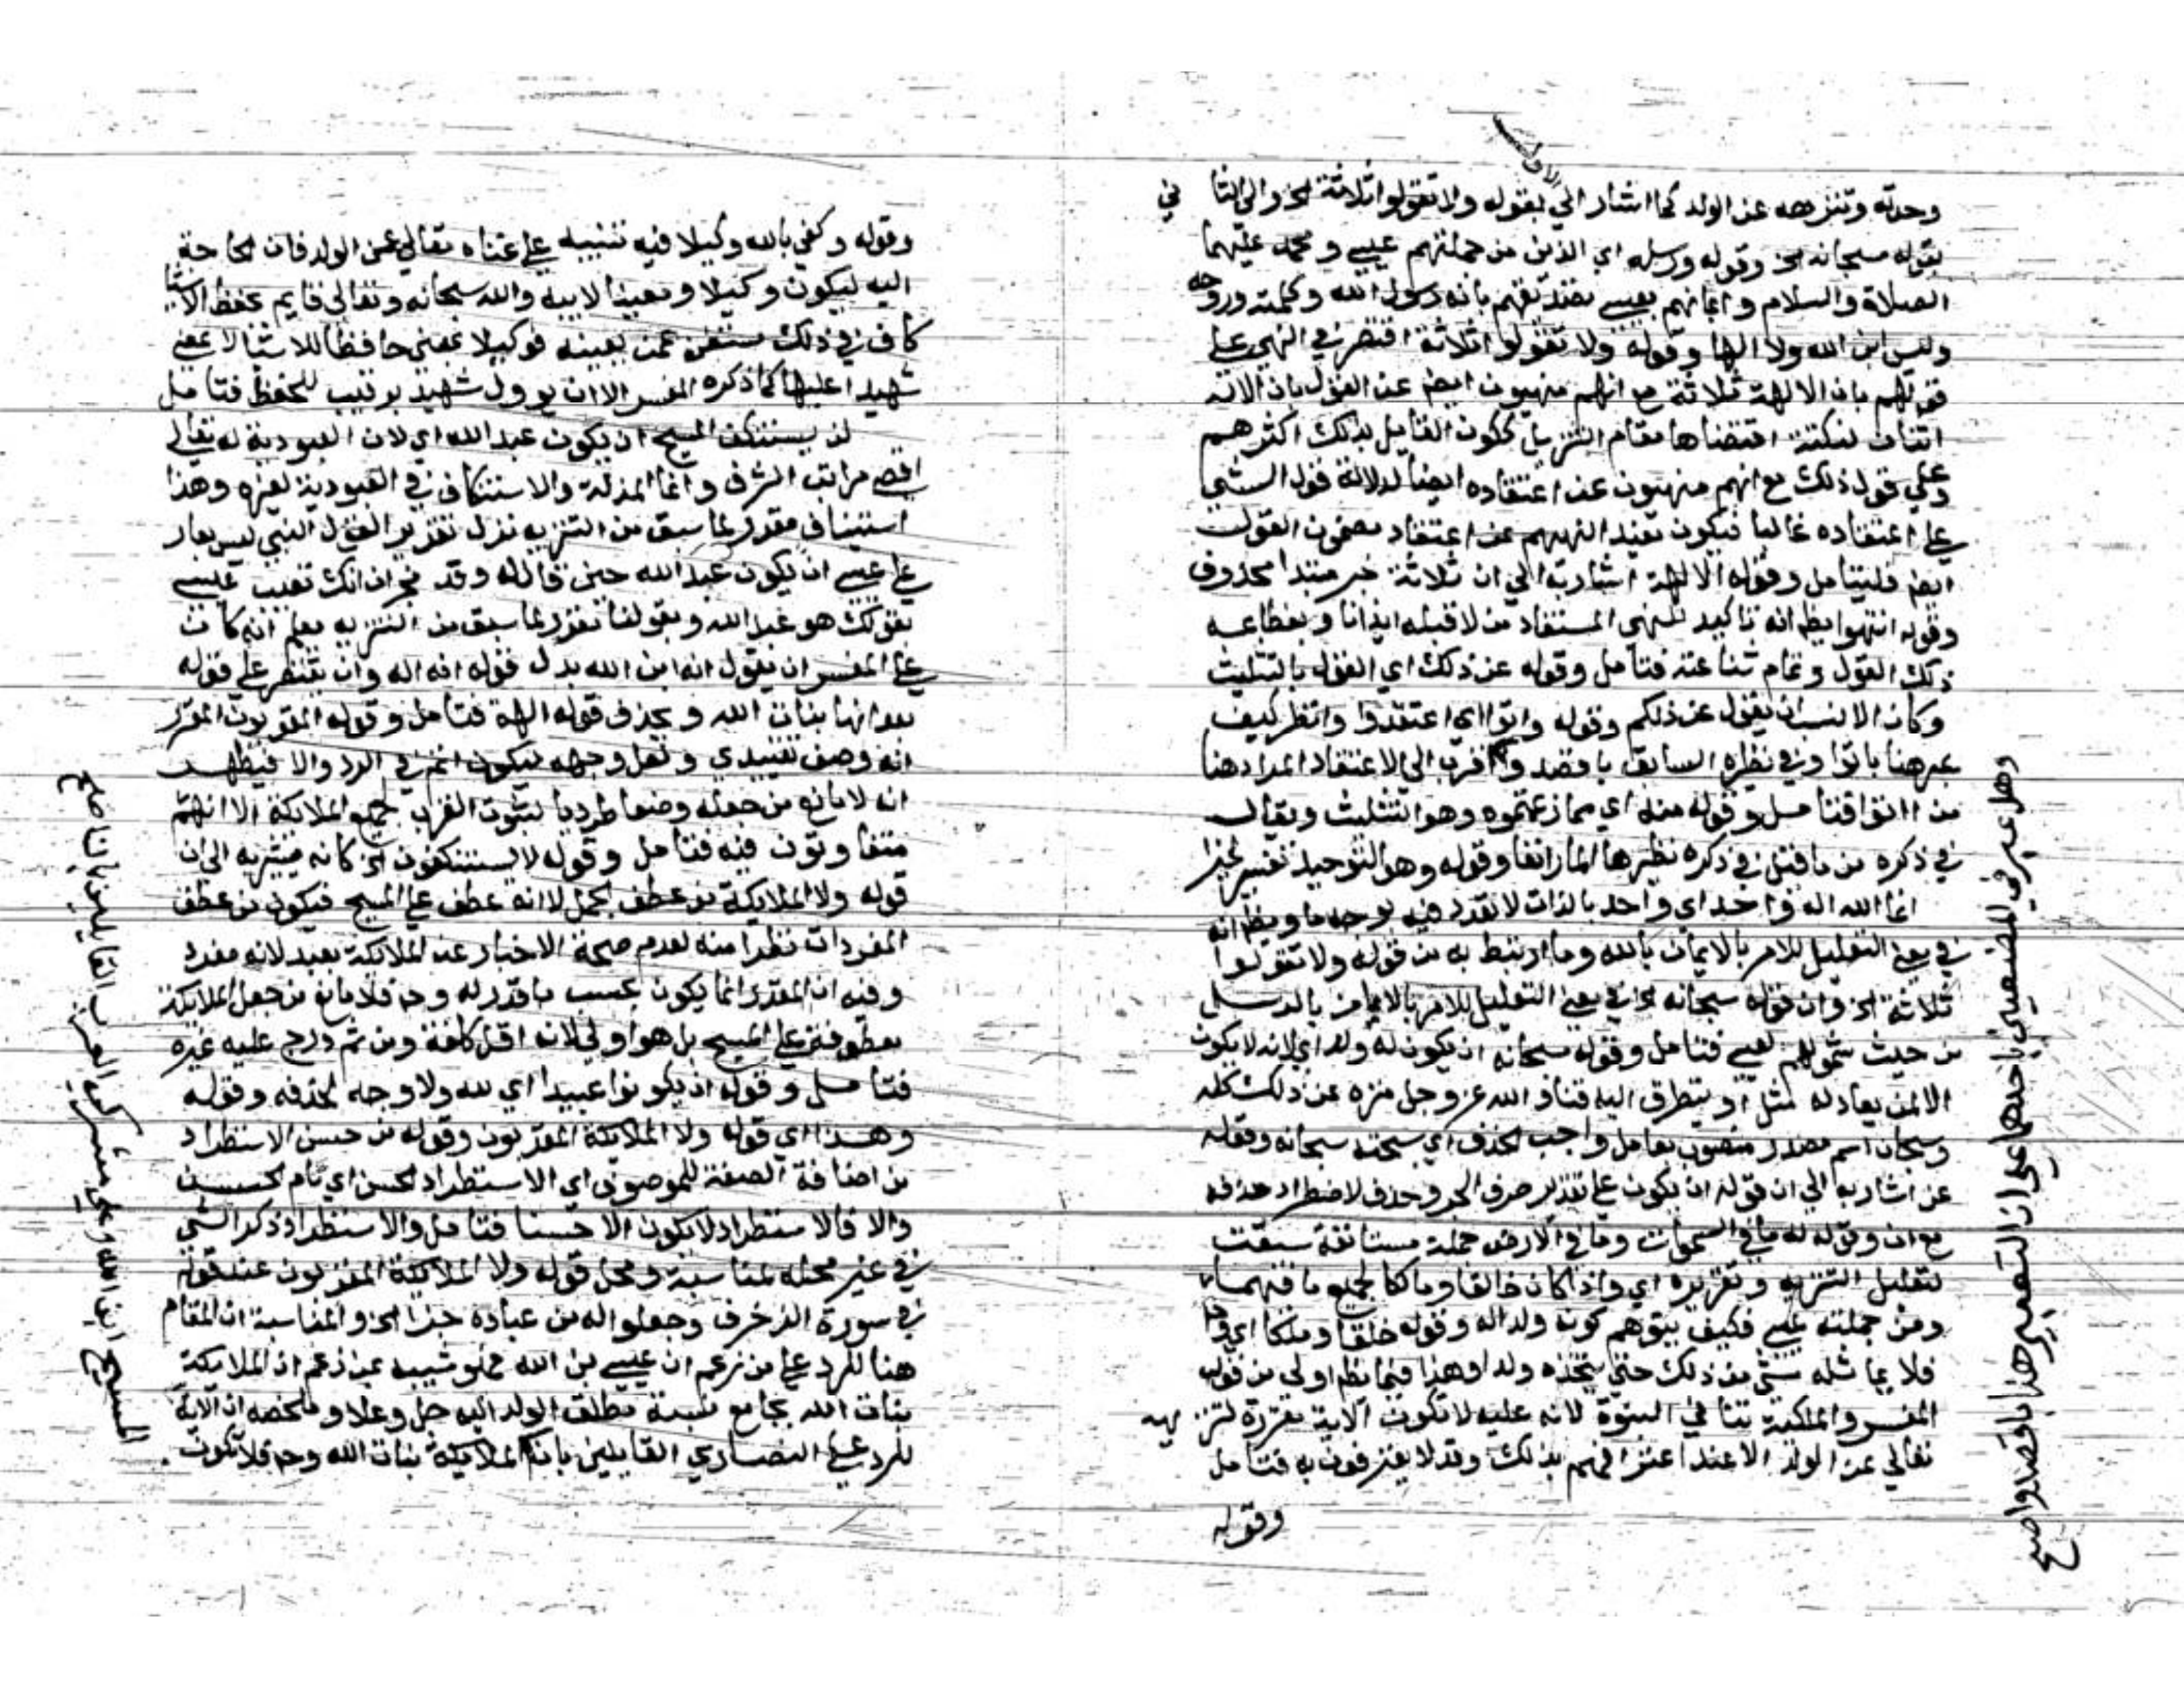 وحدته وتنزهه عن الولد كما اشار الي بقوله ولا تقولوا ثلاثة الخ والى الثا
ني
الاول
بقوله سبحانه الخ وقوله ورسله اي الذين من جملتهم عيسى ومحمد عليهما
الصلاة والسلام وايمانهم بعيسى تصديقهم بانه رسول الله وكلمته وروحه
وليس ابن الله ولا الها وقوله ولا تقولوا ثلاثة اقتصر في النهي على
قولهم بان الالهة ثلاثة مع انهم منهيون ايضا عن القول بان الاله
اثنان لنكتة اقتضاها مقام التنزيل ككون القايل بذلك اكثرهم
وعلى قول ذلك مع انهم منهيون عن اعتقاده ايضا لدلالة قول الشي
على اعتقاده غالبا فيكون نفيد النهيهم عن اعتقاد مضمون القول
ايضا فليتامل وقوله الالهة اشار به الى ان ثلاثة خبر مبتدا محذوف
وقوله انتهوا يظهر انه تاكيد للنهي المستفاد من لا قبله ايذانا بفظاعة
ذلك القول وتمام شناعته فتامل وقوله عن ذلك اي القول بالتثليث
وكان الانسب ان يقول عن ذلكم وقوله واتوا اي اعتقدوا وانظر كيف
عبر هنا باتوا وفي نظيره السابق باقصدوا واقرب الى الاعتقاد المراد هنا
من اتوا فتامل وقوله منه اي مما زعمتموه وهو التثليث ويقال
في ذكره من ما قيل في ذكره نظيرها المار انفا وقوله وهو التوحيد تفسير لخيرا
انما الله اله واحد اي واحد بالذات لا تعدد فيه بوجه ما ويظهر انه
في معنى التعليل للامر بالايمان بالله وما ارتبط به من قوله ولا تقولوا
ثلاثة الخ وان قوله سبحانه الخ في معنى التعليل للامر بالايمان بالرسل
من حيث شمولهم لعيسى فتامل وقوله سبحانه ان يكون له ولد اي لانه لا يكون
الا لمن يعادله مثل او يتطرق اليه فناء والله عز وجل منزه عن ذلك كله
وسبحان اسم مصدر منصوب بعامل واجب الحذف اي سبحته سبحانه وقوله
عن اشار به الى ان قوله ان يكون على تقدير حرف الجر وحذف لاضطراد حذفه
مع ان وقوله له ما في السموات وما في الارض جملة مستانفة سيقت
لتعليل التنزيه وتقريره اي واذا كان خالقا ومالكا لجميع ما فيهما
ومن جملته عيسى فكيف يتوهم كونه ولدا له وقوله خلقا وملكا اي و
فلا يماثله شي من ذلك حتى يتخذه ولدا وهذا فيما يظهر اولى من قول
المفسر والملكية تنافي البنوة لانه عليه لا تكون الاية مقررة لتنزيهه
تعالى عن الولد الا عند اعترافهم بذلك وقد لا يعترفون به فتامل
وقوله
وهل عبر في الموضعين باحدهما على ان التعبير هنا باقصدوا صح
وقوله وكفى بالله وكيلا فيه تنبيه على غناه تعالى عن الولد فان الحاجة
اليه ليكون وكيلا ومعينا لابيه والله سبحانه وتعالى قايم بحفظ الاشيا
كاف في ذلك مستغن عمن يعينه فوكيلا بمعنى حافظا للاشيا لا بمعنى
شهيدا عليها كما ذكره المفسر الا ان يوول شهيد برقيب للحفظ فتامل
لن يستنكف المسيح ان يكون عبد الله اي لان العبودية له تعالى
اقصى مراتب الشرف وانما المذلة والاستنكاف في العبودية لغيره وهذا
استيناف مقرر لما سبق من التنزيه نزل تقدير القول النبي ليس بعار
على عيسى ان يكون عبد الله حين قالله وفد نجران انك تعيب عيسى
بقولك هو عبد الله وبقولنا تقرر لما سبق من التنزيه يعلم انه كان
على المفسر ان يقول انه ابن الله بدل قوله انه اله وان يقتصر على قوله
بعد انها بنات الله ويحذف قوله الهة فتامل وقوله المقربون المقرر
انه وصف تقييدي ولعل وجهه ليكون اتم في الرد والا فيظهر
انه لا مانع من جعله وصفا طرديا لثبوت القرب لجميع الملائكة الا انهم
متفاوتون فيه فتامل وقوله لا يستنكفون الخ كانه يشير به الى ان
قوله ولا الملايكة من عطف الجمل لا انه عطف على المسيح فيكون من عطف
المفردات نظرا منه لعدم صحة الاخبار عن الملائكة بعبد لانه مفرد
وفيه ان المقدر انما يكون بحسب ما قدر له وح فلا مانع من جعل الملايكة
معطوفة على المسيح بل هو اولى لانه اقل كلفة ومن ثم درج عليه غيره
فتامل وقوله ان يكونوا عبيدا اي لله ولا وجه لحذفه وقوله
وهذا اي قوله ولا الملايكة المقربون وقوله من حسن الاستطراد
من اضافة الصفة للموصوف اي الاستطراد الحسن اي تام الحسن
والا فالاستطراد لا يكون الا حسنا فتامل والاستطراد ذكر الشي
في غير محله لمناسبة ومحل قوله ولا الملايكة المقربون عند قوله
في سورة الزخرف وجعلوا له من عباده جزا الخ والمناسبة ان المقام
هنا للرد على من زعم ان عيسى بن الله فهو شبيه بمن زعم ان الملايكة
بنات الله بجامع نسبة مطلق الولد اليه جل وعلا وملخصه ان الاية
للرد على النصاري القايلين بان الملايكة بنات الله وح فلا تكون
المسيح ابن الله وعلى مشركي العرب القايلين بانا صح